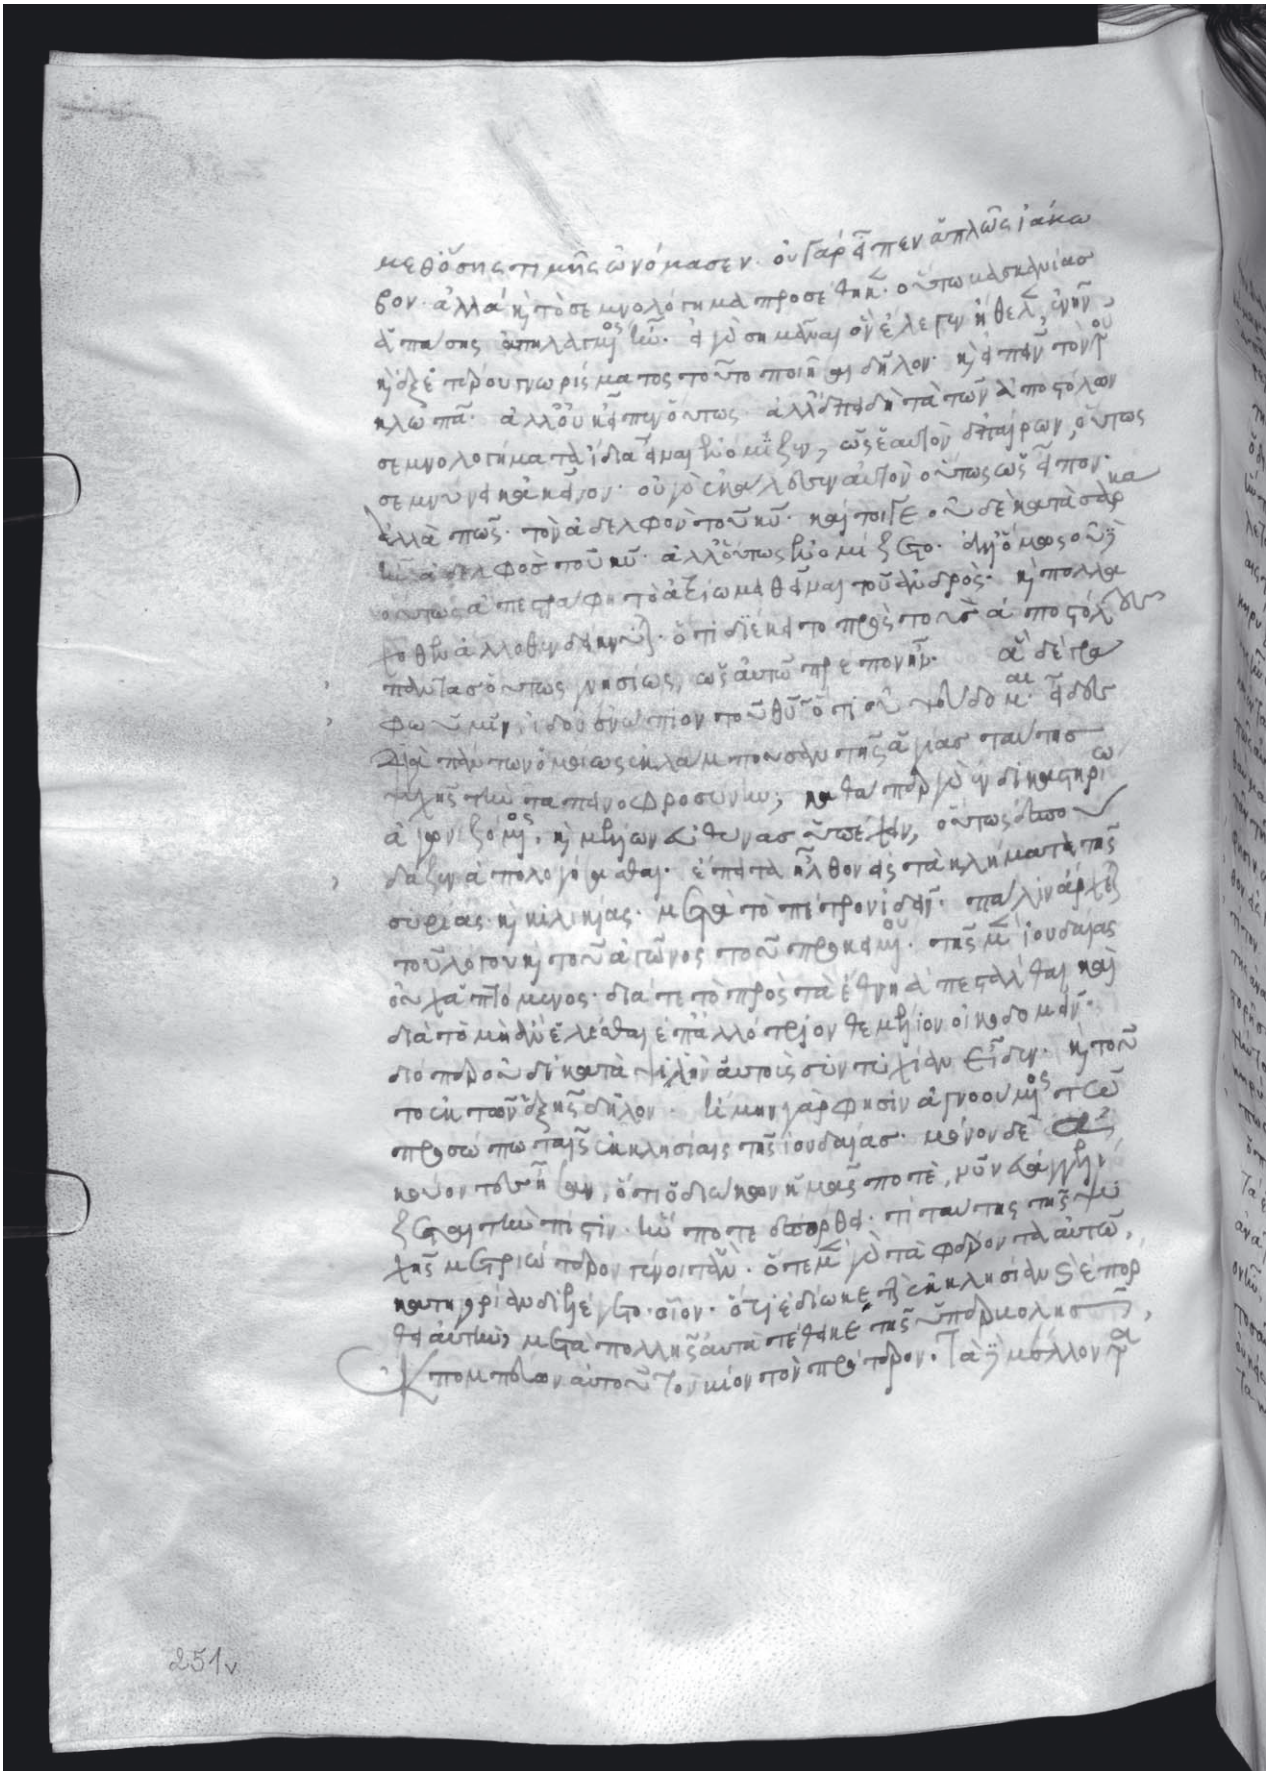 μεθ' ὅσης τιμῆς ὠνόμασεν· οὐ γὰρ εἶπεν ἁπλῶς ἰάκω
βον· ἀλλὰ καὶ τὸ σεμνολόγημα προσέθηκεν· οὕτω βασκανίας
ἁπάσης ἀπηλλαγμένος ἦν· εἰ γὰρ σημᾶναι ὃν ἔλεγεν ἤθελεν, ἐνῆν
καὶ ἐξ ἑτέρου γνωρίσματος τοῦτο ποιῆσαι δῆλον· καὶ εἰπεῖν τὸν τοῦ
κλωπᾶ· ἀλλ' οὐκ εἶπεν οὕτως· ἀλλ' ἐπειδὴ τὰ τῶν ἀποστόλων
σεμνολογήματα ἴδια εἶναι ἐνόμιζεν, ὡς ἑαυτὸν ἐπαίρων, οὕτως
σεμνύνει κἀκεῖνον· οὐ γὰρ ἐκάλεσεν αὐτὸν οὕτως ὡς εἶπον·
ἀλλὰ πῶς· τὸν ἀδελφὸν τοῦ κυ· καίτοιγε οὐδὲ κατὰ σάρκα
ἦν ἀδελφὸς τοῦ κυ· ἀλλ' οὕτως ἐνομίζετο· ἀλλ' ὅμως οὐδὲ
οὕτως ἀπεστράφη τὸ ἀξίωμα θεῖναι τοῦ ἀνδρός· καὶ πολλα
χόθεν ἀλλοθεν δείκνυσιν· ὅτι διέκειτο πρὸς τοὺς ἀποστόλους
πάντας οὕτως γνησίως, ὡς αὐτῷ πρέπον ἦν· ἃ δὲ γρά
φω ὑμῖν, ἰδοὺ ἐνώπιον τοῦ θυ ὅτι οὐ ψεύδομαι· εἶδες
διὰ πάντων ὁμοίως ἐκλάμπουσαν τῆς ἁγίας ταύτης
ψυχῆς τὴν ταπεινοφροσύνην; καθάπερ γὰρ ἐν δικαστηρίω
ἀγωνιζόμενος, καὶ μέλλων εὐθύνας ὑπέχειν, οὕτως ἐσπού
δαζεν ἀπολογήσασθαι· ἔπειτα ἦλθον εἰς τὰ κλήματα τῆς
συρίας καὶ κιλικίας· μετὰ τὸ πέτρον ἰδεῖν· πάλιν ἄρχεται
τοῦ λόγου καὶ τοῦ ἀγῶνος τοῦ προκειμένου· τῆς μὲν ἰουδαίας
οὐχ ἁπτόμενος· διά τε τὸ πρὸς τὰ ἔθνη ἀπεστάλθαι καὶ
διὰ τὸ μὴ ἂν ἑλέσθαι ἐπ' ἀλλότριον θεμέλιον οἰκοδομεῖν·
διόπερ οὐδὲ κατὰ ψιλὴν αὐτοῖς συντυχίαν εἶδεν· καὶ τοῦ
το ἐκ τῶν ἑξῆς δῆλον· ἤμην γάρ φησιν ἀγνοούμενος τῷ
προσώπω ταῖς ἐκκλησίαις τῆς ἰουδαίας· μόνον δὲ
ἀκούοντες ἦσαν, ὅτι ὁ διώκων ἡμᾶς ποτὲ, νῦν εὐαγγελί
ζεται τὴν πίστιν· ἥν ποτε ἐπόρθει· τί ταύτης τῆς ψυ
χῆς μετριώτερον γένοιτ' ἄν· ὅτε μὲν γὰρ τὰ φέροντα αὐτοῦ
κατηγορίαν διελέγετο· οἷον· ὅτι ἐδίωκε τὴν ἐκκλησίαν καὶ ἐπόρ
θει αὐτὴν, μετὰ πολλῆς αὐτὰ τέθεικε τῆς ὑπερβολῆς,
ἐκπομπεύων αὐτοῦ τὸν βίον τὸν πρότερον· τὰ δὲ μέλλοντα
251v